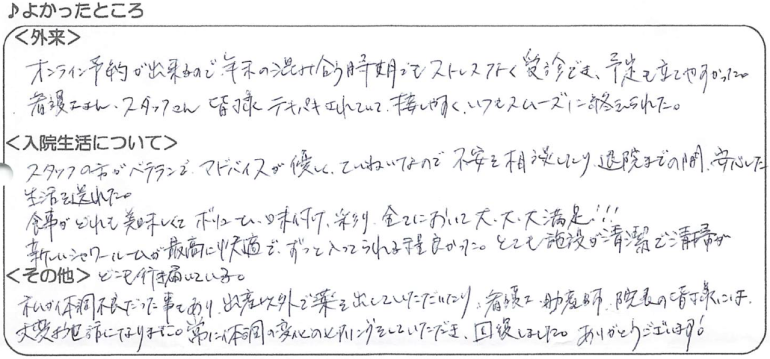 ♪よかったところ
<外来>
オンライン予約が出来るので年末の混み合う時期でもストレスなく受診でき、予定も立てやすかった。
看護師さん、スタッフさん 皆様 テキパキされていて、接しやすく、いつもスムーズに終えられた。
<入院生活について>
スタッフの方がベテランで、アドバイスが優しく、ていねいなので 不安を相談したり、退院までの間、安心した
生活を送れた。
食事がどれも美味しくて ボリューム、味付け、彩り、全てにおいて大、大、大満足!!!
新しいシャワールームが最高に快適で、ずっと入ってられる程良かった。とても施設が清潔で清掃が
<その他> どこも行き届いている。
私が体調不良だった事もあり、出産以外で薬を出していただいたり、看護師、助産師、院長の皆様には、
大変お世話になりました。常に体調の変化のヒアリングをしていただき、回復しました。ありがとうございます!